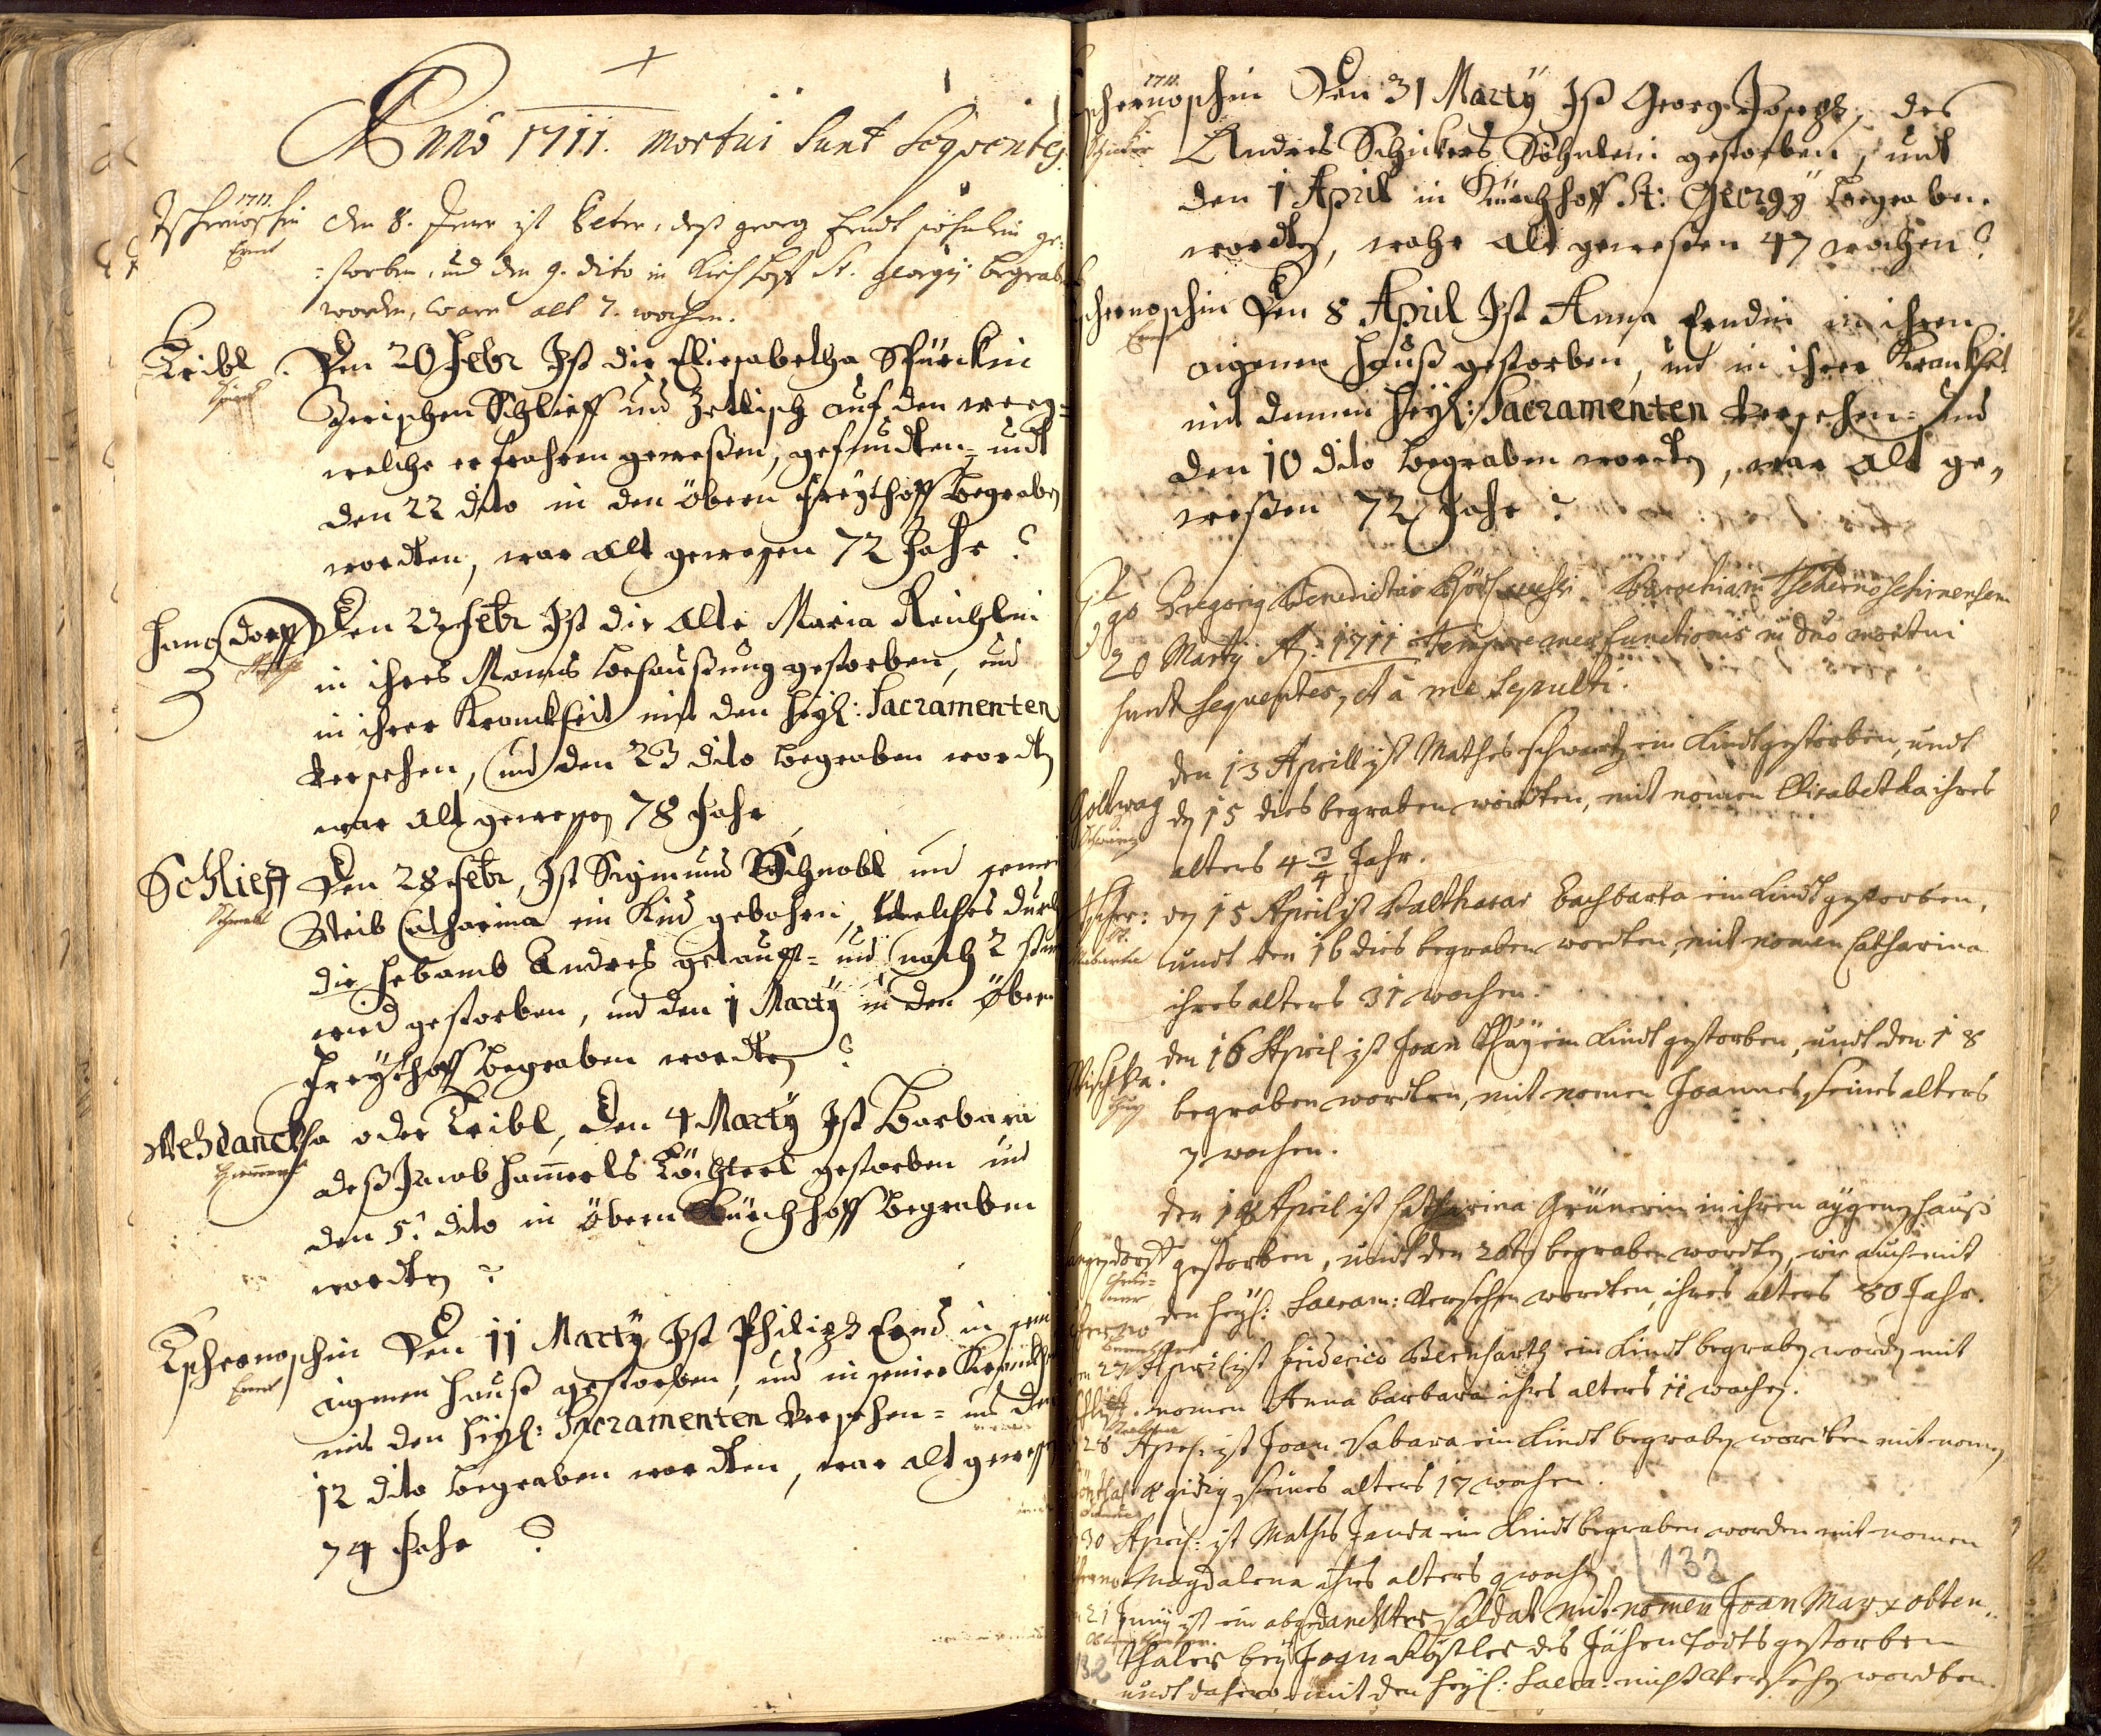 Anno 1711. mortui sunt sequentes.
1711.
Tschernoschin den 8. Jener ist Peter, deß georg Erndt söhnlein ge=
Ernt
=storben, und den 9. dito in Kirchhoff St. georgij begraben
worden, ware alt 7. wochen.
Tribl. Den 20 Febr Ist die Eliesabetha
Zwischen Schlieff und Zetlisch auf den weeg=
welche erfrohren geweßen, gefundten= undt
den 22 dito in den öbern freythoff begraben
wordten, war alt gewesen 72 Jahr
Hangsdorff Den 22 Febr Ist die alte Maria Reichlin
in ihres Manns behaußung gestorben, und
in ihrer Kranckheit mit den heyl: Sacramenten
versehen, und den 23 dito begraben wordten
war alt gewesen 78 Jahr
Schlieff Den 28 Febr, Ist Sigmund Schnabl und seinen
Schnabl
Weib Catharina ein Kind gebohren, welches durch
die hebamb Andres getaufft= und nach 2 stund
wird gestorben, und den 1 Martÿ in den öbern
freythoff begraben wordten
Wehdanckha oder Tribl, den 4 Martÿ Ist Barbara
Hammerl
deß Jacob Hammerls Töchterl gestorben und
den 5. dito in öbern Kürchhoff begraben
wordten
Tschernoschin Den 11 Martÿ Ist Philipp Ernd in sein
Ernt
aigenen Hauß gestorben, und in seiner Kranckheit
mit den heyl: Sacramenten versehen= und den
12 dito begraben wordten, war alt gewesen
74 Jahr
1711.
schernoschin Den 31 Martÿ Ist Georg Joseph, des
Andres Schickers Söhnlein gestorben, undt
den 1 April in Kürchhoff St: Georgÿ begraben
wordten, wahr alt geweßen 47 wochen
schernoschin Den 8 April Ist Anna Erndin in ihren
Ernt
aigenen Hauß gestorben, und in ihrer Krankheit
mit denen heyl: Sacramenten versehen= und
den 10 dito begraben wordten, war alt ge=
weßen 72 Jahr
Ego Gregorig Benedictus Parochiam Tschernoschinensem
20 Martij A: 1711 tempore meae functionis in duo mortui
sunt sequentes, et à me sepulti.
den 13 Aprill ist Mathes schwartz ein Kindt gestorben, undt
Goltwag dn 15 dies begraben wordten, mit nomen Elisabetha ihres
alters 4 3/4 Jahr.
Tscher: dn 15 April ist Balthasar Bachbarta ein Kindt gestorben,
undt den 16 dies begraben wordten, mit nomen Catharina
ihres alters 31 wochen.
den 16 April ist Joan Thuy ein Kindt gestorben, undt den 18
Wischka. begraben wordten, mit nomen Joannes, seines alters
Thuy
7 wochen.
den 18 April ist Catharina Grünerin in ihren aygenen hauß
angesdorff gestorben, undt den 20ten begraben wordten, wie auch mit
Grü=
ner
den heyl: Sacram: versehen wordten, ihres alters 80 Jahr.
27 April ist friderico Bernharth ein Kindt begraben worden mit
nomen Anna barbara ihres alters 11 wochen.
28 April: ist Joan Sabara ein Kindt begraben wordten mit nomen
Egidig, seines alters 17 wochen.
30 April: ist Mathes Janda ein Kindt begraben worden mit nomen
Magdalena ihres alters 9 wochen
132
21 Junij ist ein abgedanckhter soldat mit nomen Joan Marx obten=
132 thaler bey Joan Köstler des Jähen todts gestorben
undt dahero mit den heyl: Sacra: nicht versehen wordten.